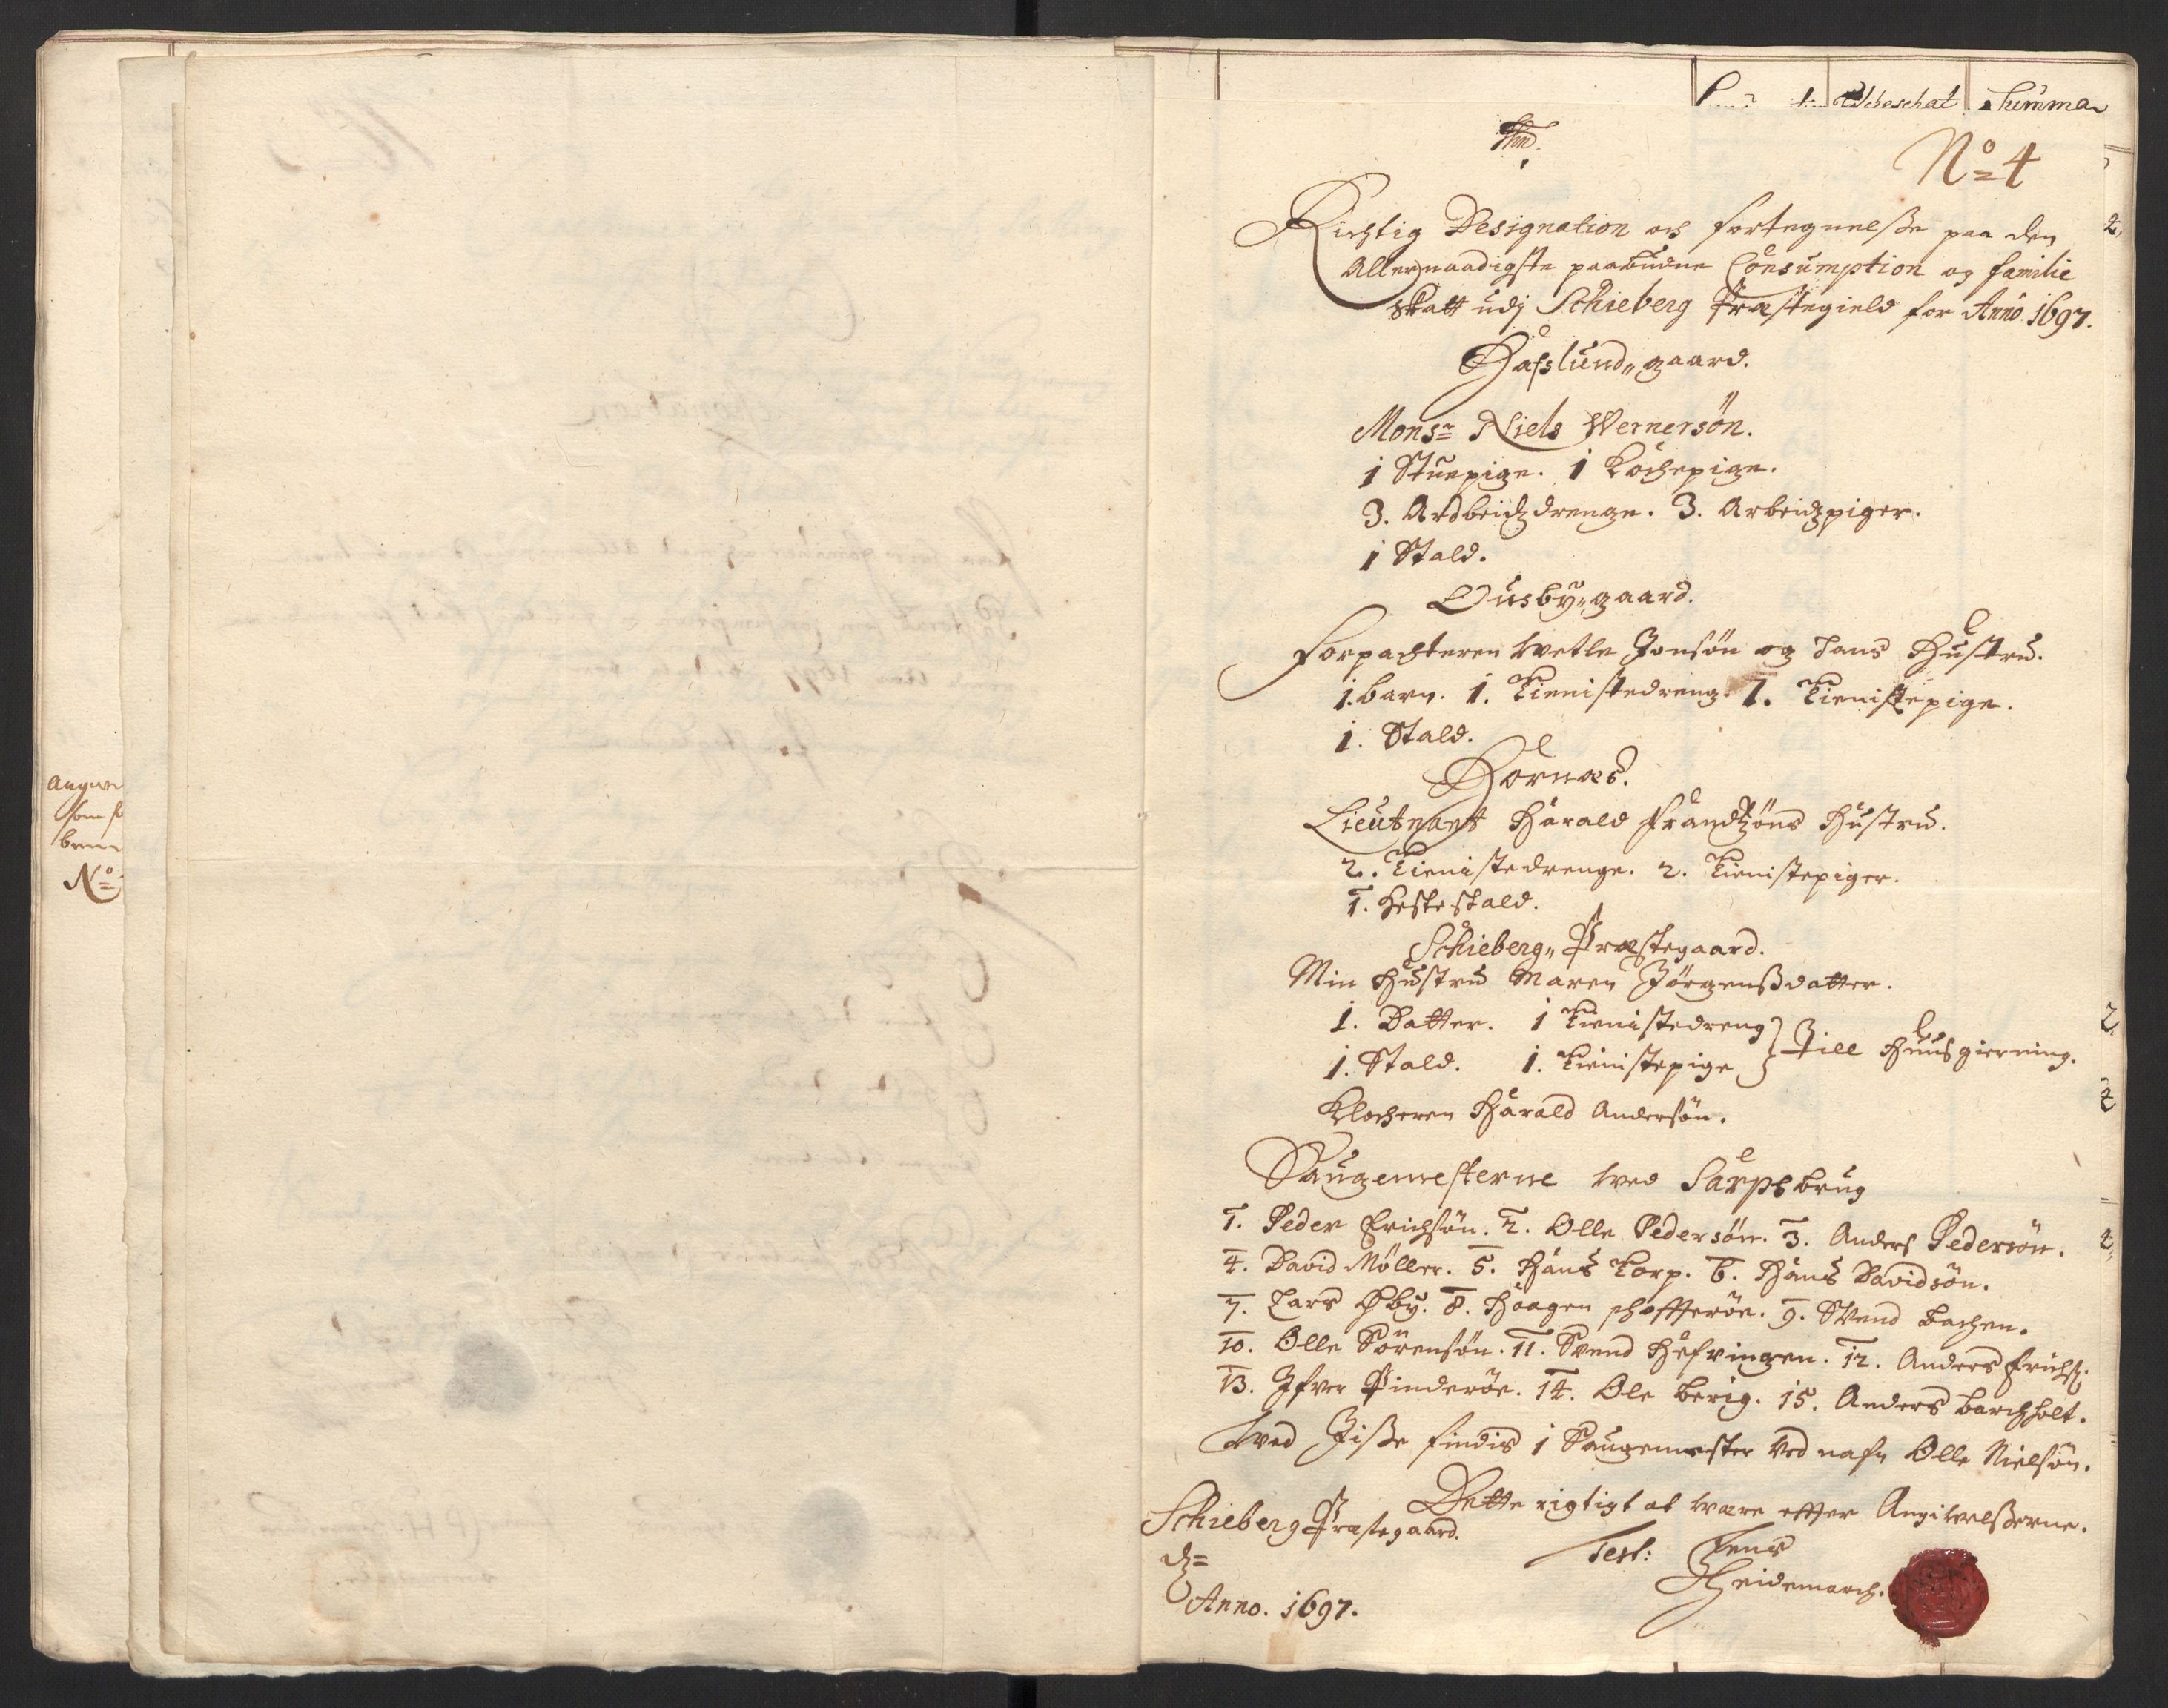 Skoeschat Summa
No 4
Richtig Designation och fortegnelsße paa den
Allernaadigste paabudne Consumption og familie
skatt udj Schieberg Præstegield for Anno. 1697.
Hafslund„gaard.
Monsr Niels Wernersøn.
1 Stuepige. 1 Kochepige.
3. Ardbeidzdrenge. 3. Arbeidzpiger.
1 Stald.
Ousby„gaard.
Forpachteren Wetle Jonsøn og hans Hustru.
1. barn. 1. Tienistedreng. 1. Tienistepige.
1. Stald.
Hornæs.
Lieutnant Harald Frandtzøns Hustru.
2. Tienistedrenge. 2. Tienistepiger.
1. Hestestald.
Schieberg„Præstegaard.
Min Hustru Maren Jørgensßdatter.
1. Datter. 1 Tienistedreng
1. Stald. 1. Tienistepige } Till Huusgierning.
Klocheren Harald Andersøn.
Saugemesterne wed Sarpsbrug
1. Peder Erichsøn. 2. Olle Pedersøn. 3. Anders Pedersøn.
4. David Møller. 5. Hans Torp. 6. Hans Davidsøn.
7. Lars Øby. 8. Haagen 9. Svend Bachen.
10. Olle Sørensøn. 11. Svend Hefringen. 12. Anders Erichs:
13. Ifver Pinderøe. 14. Ole Berig. 15. Anders Barchholt.
Wed Jisße findis 1 Saugemester ved nafn Olle Nielsøn.
Dette rigtigt at være effter Angivelsßerne.
Schieberg Præstegaard.
Test: Jens
Heidemarch.
Anno. 1697.
No